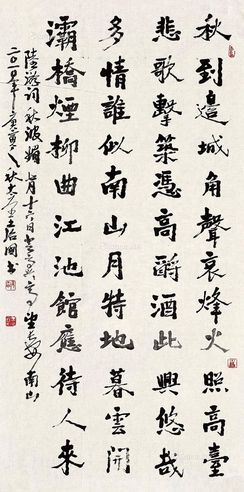 秋到邊城角聲哀烽火照高臺
悲歌擊築憑高酹酒此興悠哉
多情誰似南山月特地暮雲開
灞橋煙柳曲江池館應待人來
陸游詞秋波媚七月十六日登高興亭望長安南山